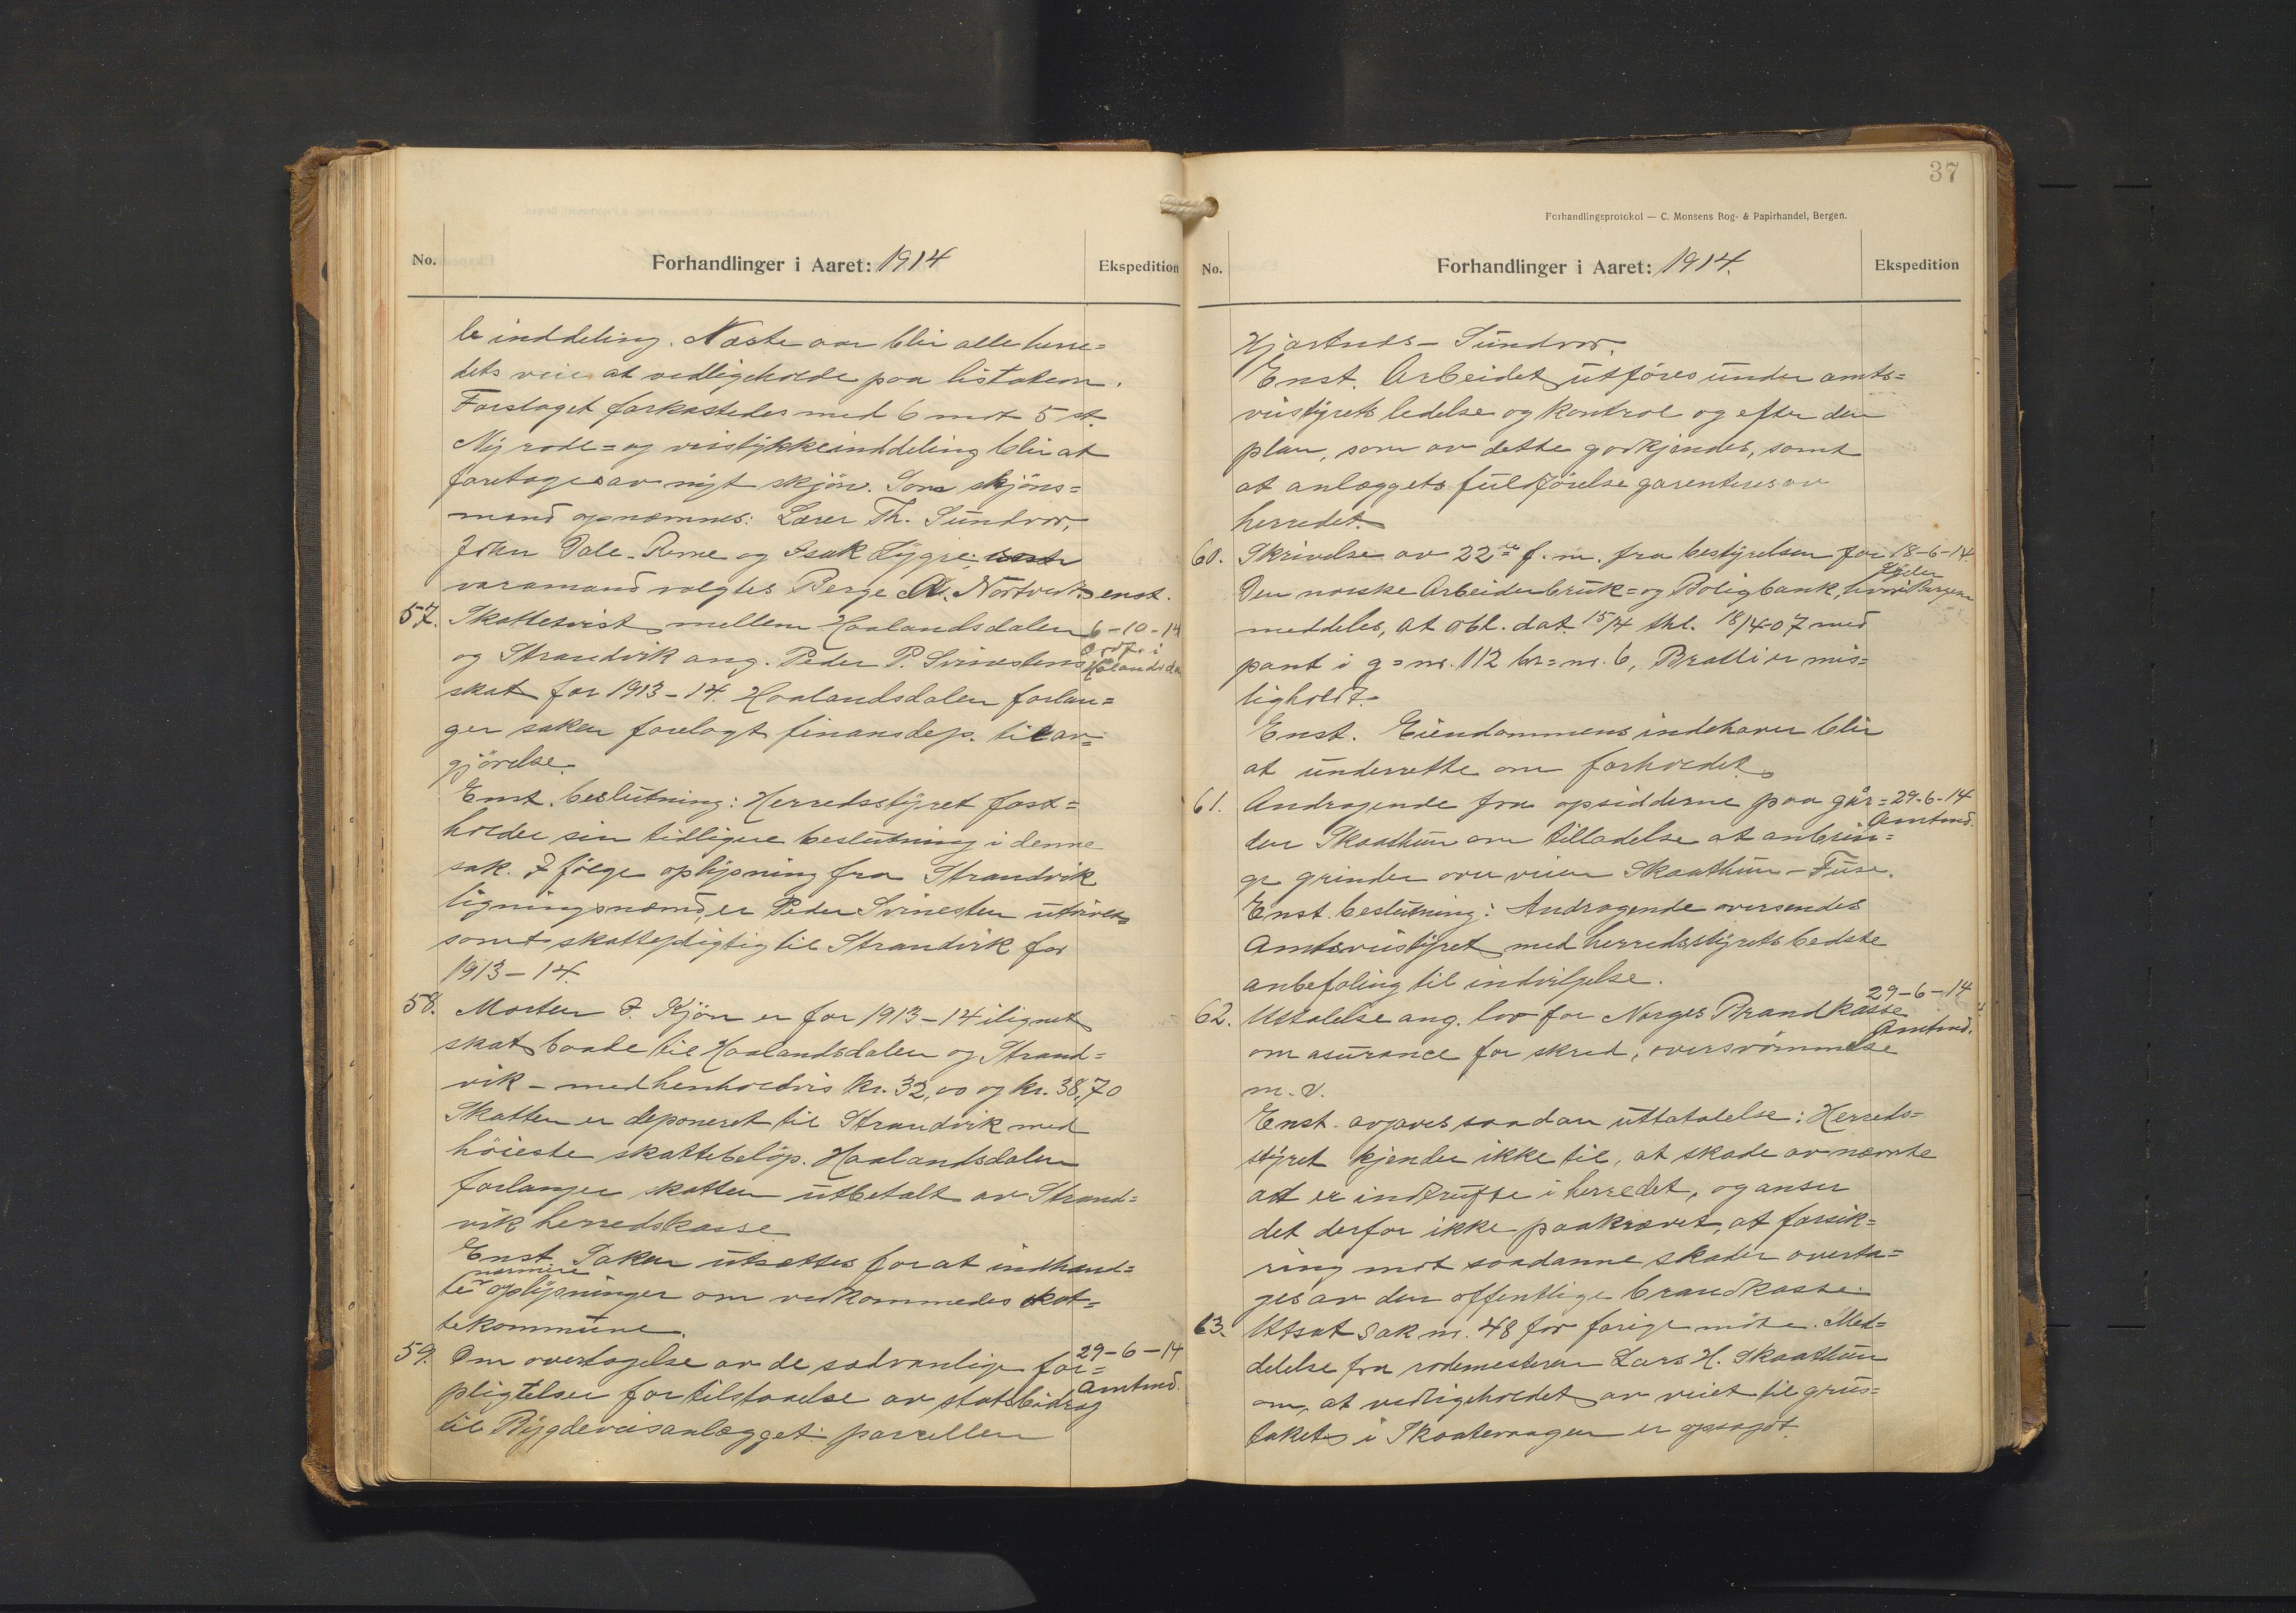 No. Forhandlinger i Aaret: 1914 Ekspedition
le inddeling. Næste aar blir alle herre=
dets veie at vedligeholde paa listation.
Forslaget forkastedes med 6 mot 5 st.
Ny rode= og veistykkeinddeling blir at
foretages av nyt skjön. Som skjöns=
mænd opnævnes: Lærer Th. Sundvor,
John Dale-Reme og Isak Lygre.
varamand valgtes Berge A. Nortvedt. enst.
57. Skattetvist mellem Haalandsdalen 6-10-14
og Strandvik ang. Peder P. Svinestens Ordf. i Hålandsdal
skat for 1913-14. Haalandsdalen forlan=
ger saken forelagt finansdep. til av=
gjörelse.
Enst. beslutning: Herredsstyret fast=
holder sin tidligere beslutning i denne
sak. I fölge oplysning fra Strandvik
ligningsnævnd, er Peder Svinesten
samt skattepligtig til Strandvik for
1913-14.
58. Morten J. Kjön er for 1913-14 ilignet
skat baade til Haalandsdalen og Strand=
vik - med henholdsvis kr. 32,00 og kr. 38,70
Skatten er deponeret til Strandvik med
höieste skattebelöp. Haalandsdalen
forlanger skatten utbetalt av Strand=
vik herredskasse
Enst. Saken utsættes for at indhand=
te nærmere oplysninger om vedkommedes skat=
tekommune.
59. Om overtagelse av de sædvanlige for= 29-6-14
pligtelser for tilstaaelse av statsbidrag Amtmd.
til Bygdeveisanlægget: parcellen
37
Forhandlingsprotokol — C. Monsens Bog- & Papirhandel, Bergen.
No. Forhandlinger i Aaret: 1914. Ekspedition
Hjartnes - Sundvor.
Enst. Arbeidet utföres under amts=
veistyrets ledelse og kontrol og efter den
plan, som av dette godkjendes, samt
at anlæggets fuldförelse garenteres av
herredet.
60. Skrivelse av 22de f. m. fra bestyrelsen for 18-6-14.
Den norske Arbeiderbruk= og Boligbank, hvori Bergen
meddeles, at obl. dat. 15/4 thl. 18/4-07 med
pant i g=nr. 112 br=nr. 6, Bratli er mis=
ligholdt.
Enst. Eiendommens indehaver blir
at underrette om forholdet.
61. Andragende fra opsidderne paa går= 29-6-14
den Skaathun om tilladelse at anbrin= Amtmd.
ge grinder over veien Skaathun - Fuse.
Enst. beslutning: Andragende oversendes
Amtsveistyret med herredsstyrets bedste
anbefaling til indvilgelse.
62. Uttalelse ang. lov for Norges Brandkasse 29-6-14
om asurance for skred, oversvömmelse Amtmd.
m. v.
Enst. avgaves saadan uttatalelse: Herreds=
styret kjender ikke til, at skade av nævnte
art er indtruffe i herredet, og anser
det derfor ikke paakrævet, at forsik=
ring mot saadanne skader overta=
ges av den offentlige brandkasse.
63. Utsat sak nr. 48 for forige möte. Med=
delelse fra rodemesteren Lars H. Skaathun
om, at vedligeholdet av veiet til grus=
taket i Skaatevaagen er opsagdt.